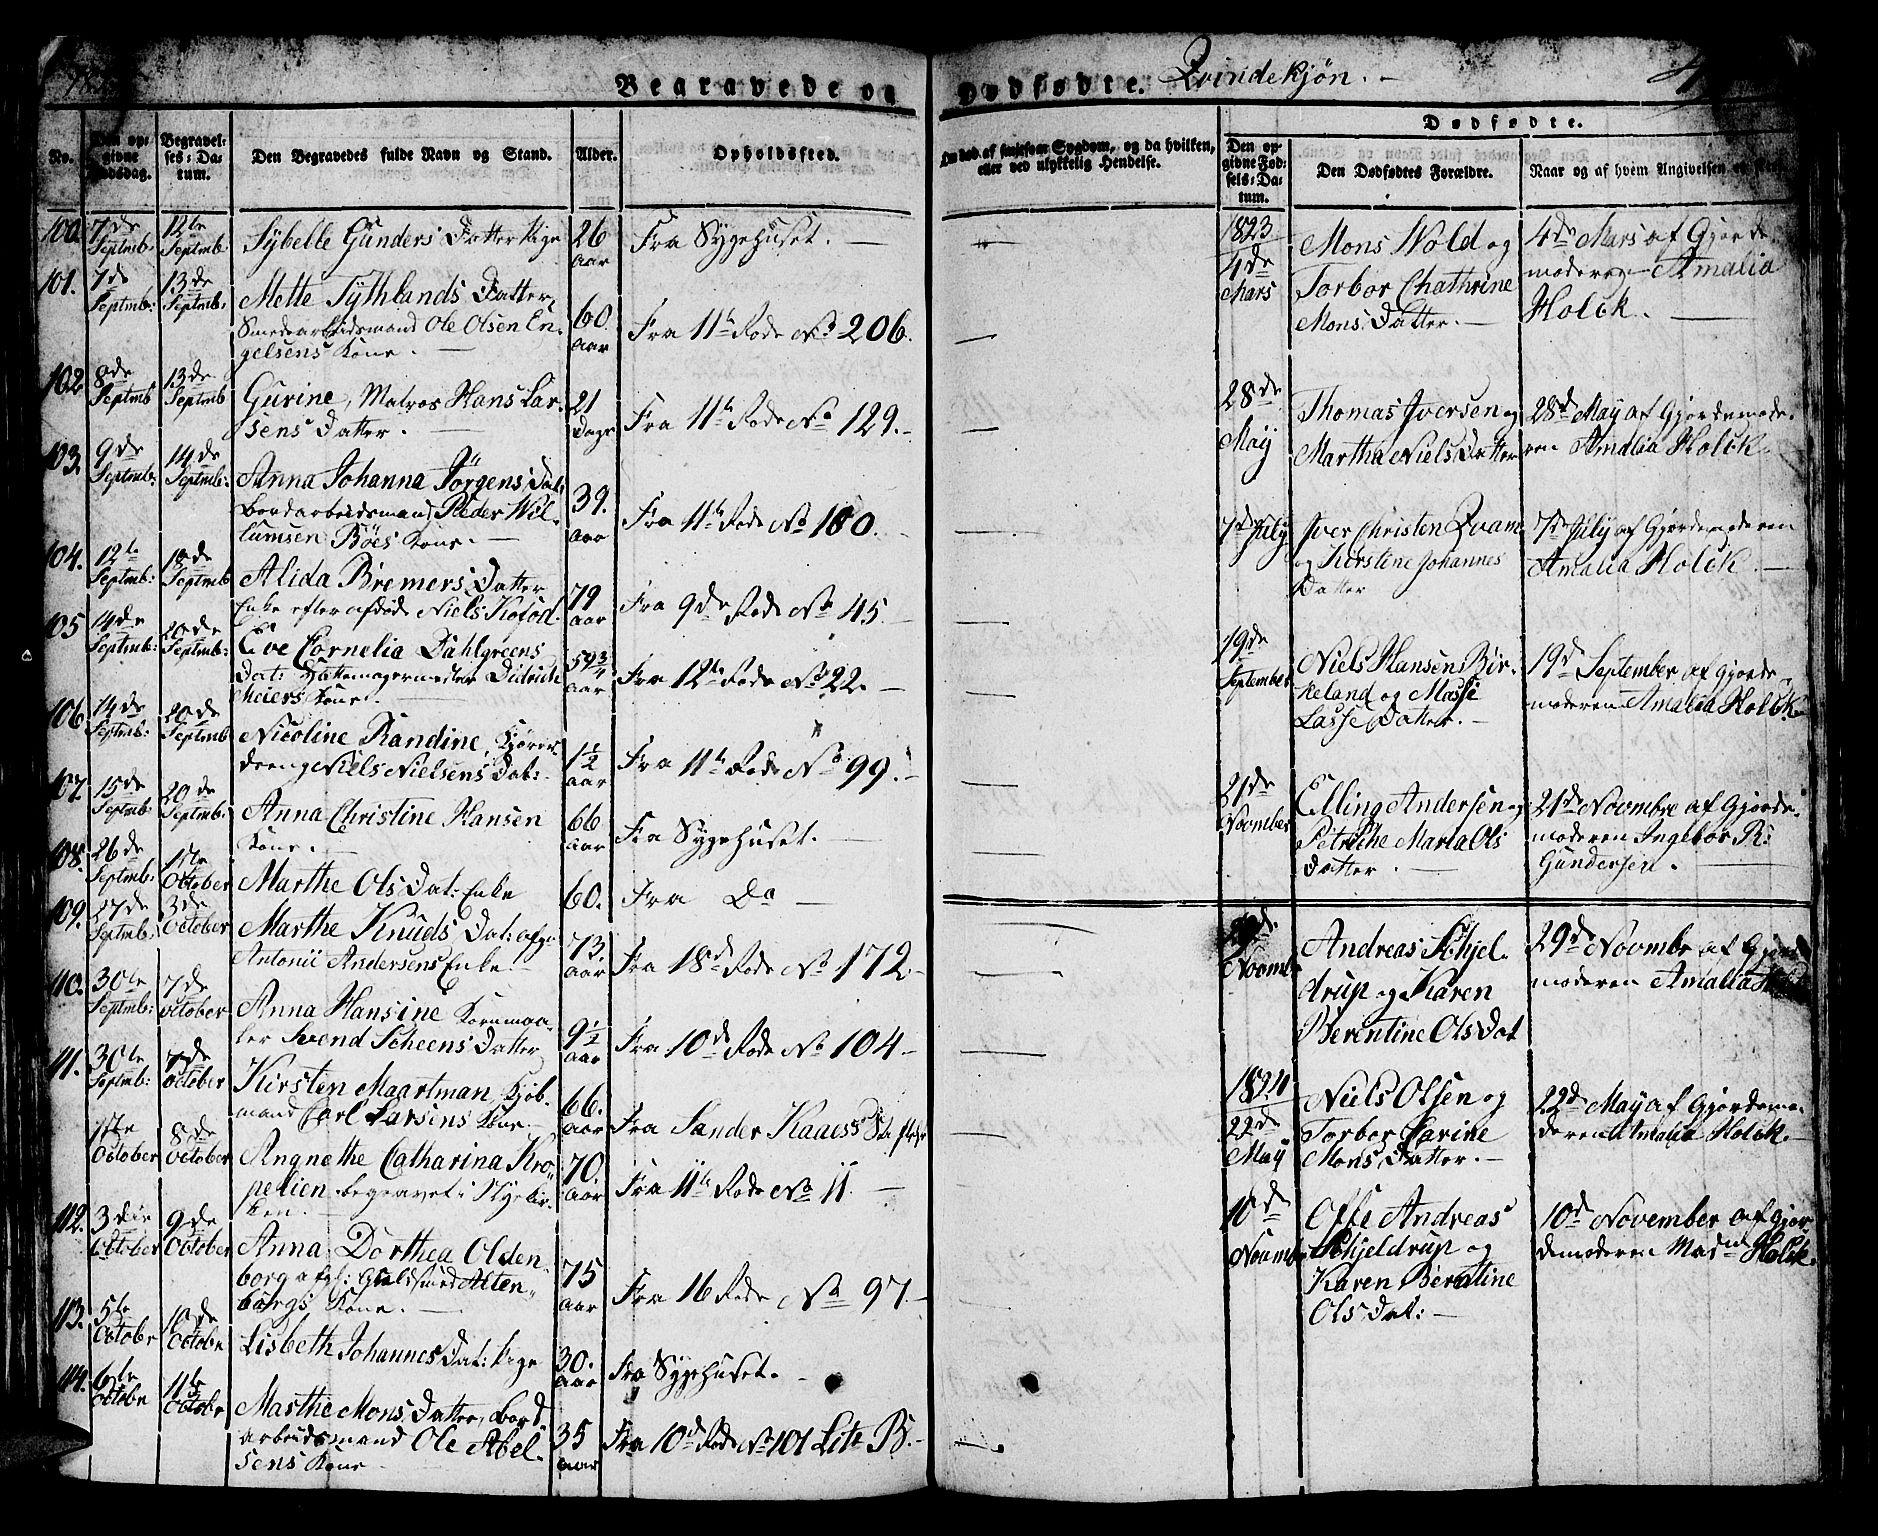 Begravede og Dødfødte. Qvindekjøn. -
No.
Den opgivne Dødsdag.
Begravelses-Datum.
Den Begravedes fulde Navn og Stand.
Alder.
Opholdssted.
eller ved ulykkelig Hendelse.
Dødfødte.
Den opgivne Fødsels-Datum.
Den Dødfødtes Forældre.
Naar og af hvem Angivelsen
100. 7de Septmb: 12te Septmb:
Sybelle Gunders Datter Pige
26 aar
Fra Sygehuset. —
101. 7de Septmb: 13de Septmb:
Mette Tythlands Datter,
Smedearbeidsmand Ole Olsen En-
gelsens Kone. —
60. aar
Fra 11te Rode No 206.
102. 8de Septmb 13de Septmb
Gurine, Matros Hans Lar-
sens Datter. —
21 Dage
Fra 11te Rode No 129. -
103. 9de Septmb: 14de Septmb:
Anna Johanna Jörgens Dat:
Bordarbeidsmand Peder Wil-
lumsen Böes Kone. —
39. aar
Fra 11te Rode No 180. -
104. 12te Septmb: 18de Septmb
Alida Bremers Datter
Enke efter afdöde Niels Kofod.
79 aar
Fra 9de Rode No 45. -
105 14de Septmb: 20de Septmb:
Eve Cornelia Dahlgreens
Dat: Hattemagermester Didrich
Meiers Kone. —
59 3/4 aar
Fra 12te Rode No 22. -
106. 14de Septmb: 20de Septmb
Nicoline Randine, Kjörer-
dreng Niels Nielsens Dat: -
1 1/2 aar
Fra 11te Rode No 99. -
107. 15de Septmb: 20de Septmb:
Anna Christine Hansen
Kone. —
66 aar
Fra Sygehuset. —
108. 26de Septmb: 1ste October
Marthe Ols Dat: Enke
60.
Fra Do —
109. 27de Septmb: 3de October
Marthe Knuds Dat: afg:
Antonii Andersens Enke. -
73. aar
Fra 18de Rode No 172. -
110. 30te Septmb: 7de October
Anna Hansine Kornmaa-
ler Svend Scheens Datter
9 1/2 aar
Fra 10de Rode No 104 -
111. 30te Septmb: 7de October
Kirsten Maartman, Kjöb-
mand Carl Larsens Kone -
66. aar
Fra Sander Kaaes
1ste October 8de October
Angnethe Catharina Krö-
pelien begravet i Nykir-
ken. —
70. aar
Fra 11te Rode No 11. —
112. 3die October 9de October
Anna Dorthea Olden-
borg afg: Guldsmed Alten-
borgs Kone. —
75 aar
Fra 16 Rode No 97. -
113. 5te Octobr 10de Octobr
Lisbeth Johannes Dat: Pige
30. aar
Fra Sygehuset. -
114. 6te Octobr 11te Octobr
Marthe Mons Datter, Bord-
arbeidsmand Ole Abel-
sens Kone -
35 aar
Fra 10de Rode No 101 Litr B. -
1823
4de Mars
Mons Wold og
Torbor Chathrine
Mons Datter. —
4de Mars af Gjorde-
moderen Amalia
Holck. —
28de May
Thomas Iversen og
Martha Niels Datter
28de May af Gjordemode-
ren Amalia Holck.
7de July
Iver Christen Qvam
og Kirstine Johannes
Datter
7de July af Gjordemoderen
Amalia Holck. —
19de September
Niels Hansen Bir-
keland og Masse
Lasse Datter. —
19de September af Gjorde-
moderen Amalia Holck.
21de Novmber
Elling Andersen og
Petriche Maria Ols
Datter. —
21de Novmbre af Gjorde-
moderen Ingebor R:
Gundersen. —
29de Novmbr
Andreas Schjel-
drup og Karen
Berentine Ols Dat
29de Novmbr af Gjorde-
moderen Amalia Holck
1824
22de May
Niels Olsen og
Torbor Carine
Mons Datter. —
22de May af Gjordemo-
deren Amalia Holck. -
10de Novmbr
Offe Andreas
Schjeldrup og
Karen Berntine
Ols Dat: —
10de November af Gjor-
demoderen Madm Holck.